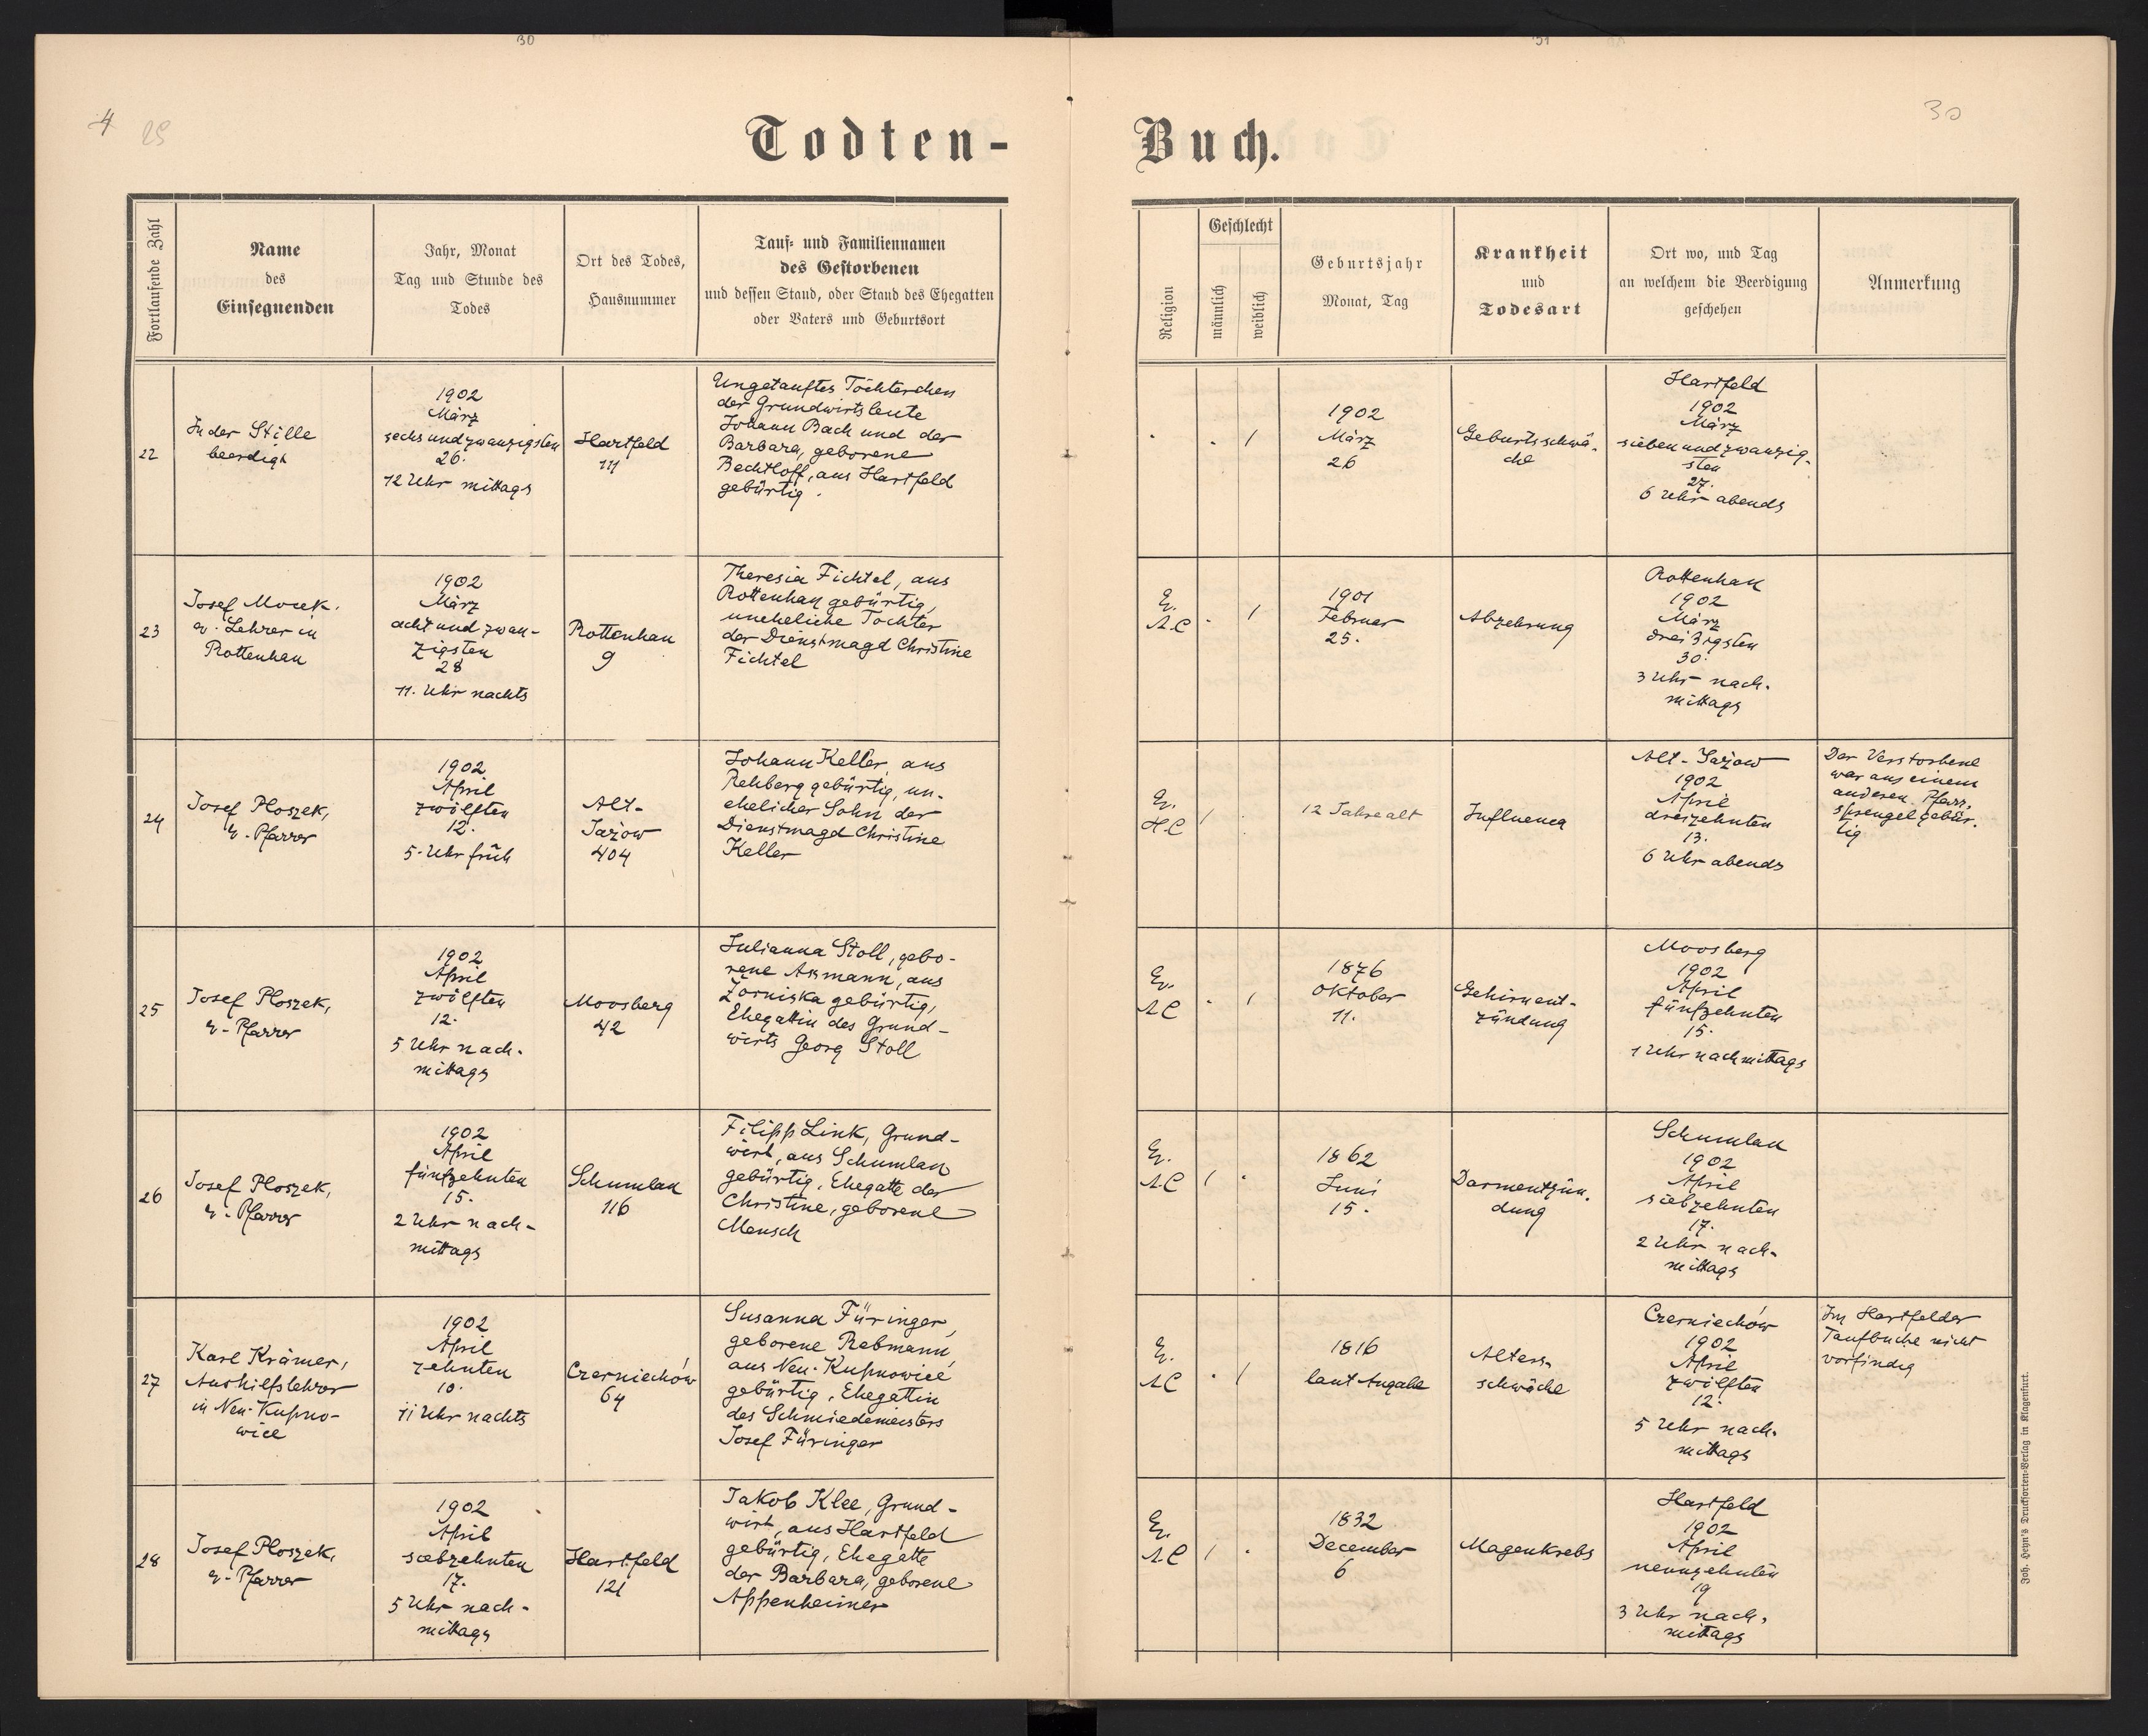 30
31
4
29
30
Todten-
Buch.
Fortlaufende Zahl
Name
des
Einsegnenden
Jahr, Monat
Tag und Stunde des
Todes
Ort des Todes,
Hausnummer
Tauf- und Familiennamen
des Gestorbenen
und dessen Stand, oder Stand des Ehegatten
oder Vaters und Geburtsort
Religion
Geschlecht
männlich
weiblich
Geburtsjahr
Monat, Tag
Krankheit
und
Todesart
Ort wo, und Tag
an welchem die Beerdigung
geschehen
Anmerkung
22
In der Stille
beerdigt
1902
März
sechsundzwanzigsten
26.
12 Uhr mittags
Hartfeld
111
Ungetauftes Töchterchen
der Grundwirtsleute
Johann Bach und der
Barbara, geborene
Bechtloff, aus Hartfeld
gebürtig.
1
1902
März
26
Geburtsschwä-
che
Hartfeld
1902
März
siebenundzwanzig-
sten
27.
6 Uhr abends
23
Josef Mosek.
ev. Lehrer in
Rottenhan
1902
März
achtundzwan-
zigsten
28
11. Uhr nachts
Rottenhan
9
Theresia Fichtel, aus
Rottenhan gebürtig,
uneheliche Tochter
der Dienstmagd Christine
Fichtel
Ev.
A.C
1
1901
Februar
25.
Abzehrung
Rottenhan
1902
März
dreißigsten
30.
3 Uhr nach-
mittags
24
Josef Ploszek,
ev. Pfarrer
1902
April
zwölften
12.
5. Uhr früh
Alt-
Jazow
404
Johann Keller, aus
Rehberg gebürtig, un-
ehelicher Sohn der
Dienstmagd Christine
Keller
Ev.
H.C
1
12 Jahre alt
Influenca
Alt-Jazow
1902
April
dreizehnten
13.
6 Uhr abends
Der Verstorbene
war aus einem
anderen Pfarr-
sprengel gebür-
tig
25
Josef Ploszek,
ev. Pfarrer
1902
April
zwölften
12.
5 Uhr nach-
mittags
Moosberg
42
Julianna Stoll, gebo-
rene Asmann, aus
Zorniska gebürtig,
Ehegattin des Grund-
wirts Georg Stoll
Ev.
A.C
1
1876
Oktober
11.
Gehirnent-
zündung
Moosberg
1902
April
fünfzehnten
15.
1 Uhr nachmittags
26
Josef Ploszek,
ev. Pfarrer
1902
April
fünfzehnten
15.
2 Uhr nach-
mittags
Schumlau
116
Filipp Link, Grund-
wirt, aus Schumlau
gebürtig, Ehegatte der
Christine, geborene
Mensch
Ev.
A.C
1
1862
Juni
15.
Darmentzün-
dung
Schumlau
1902
April
siebzehnten
17.
2 Uhr nach-
mittags
27
Karl Krämer,
Aushilfslehrer
in Neu-Kupno-
wice
1902
April
zehnten
10.
11 Uhr nachts
Czerniechów
64
Susanna Füringer,
geborene Rebmann,
aus Neu-Kupnowice
gebürtig, Ehegattin
des Schmiedemeisters
Josef Füringer
Ev.
A.C
1
1816
laut Angabe
Alters-
schwäche
Czerniechów
1902
April
zwölften
12.
5 Uhr nach-
mittags
Im Hartfelder
Taufbuche nicht
vorfindig
28
Josef Ploszek,
ev. Pfarrer
1902
April
siebzehnten
17.
5 Uhr nach-
mittags
Hartfeld
121
Jakob Klee, Grund-
wirt, aus Hartfeld
gebürtig, Ehegatte
der Barbara, geborene
Appenheimer
Ev.
A.C
1
1832
December
6
Magenkrebs
Hartfeld
1902
April
neunzehnten
19
3 Uhr nach-
mittags
Joh. Heyn's Drucksorten-Verlag in Klagenfurt.